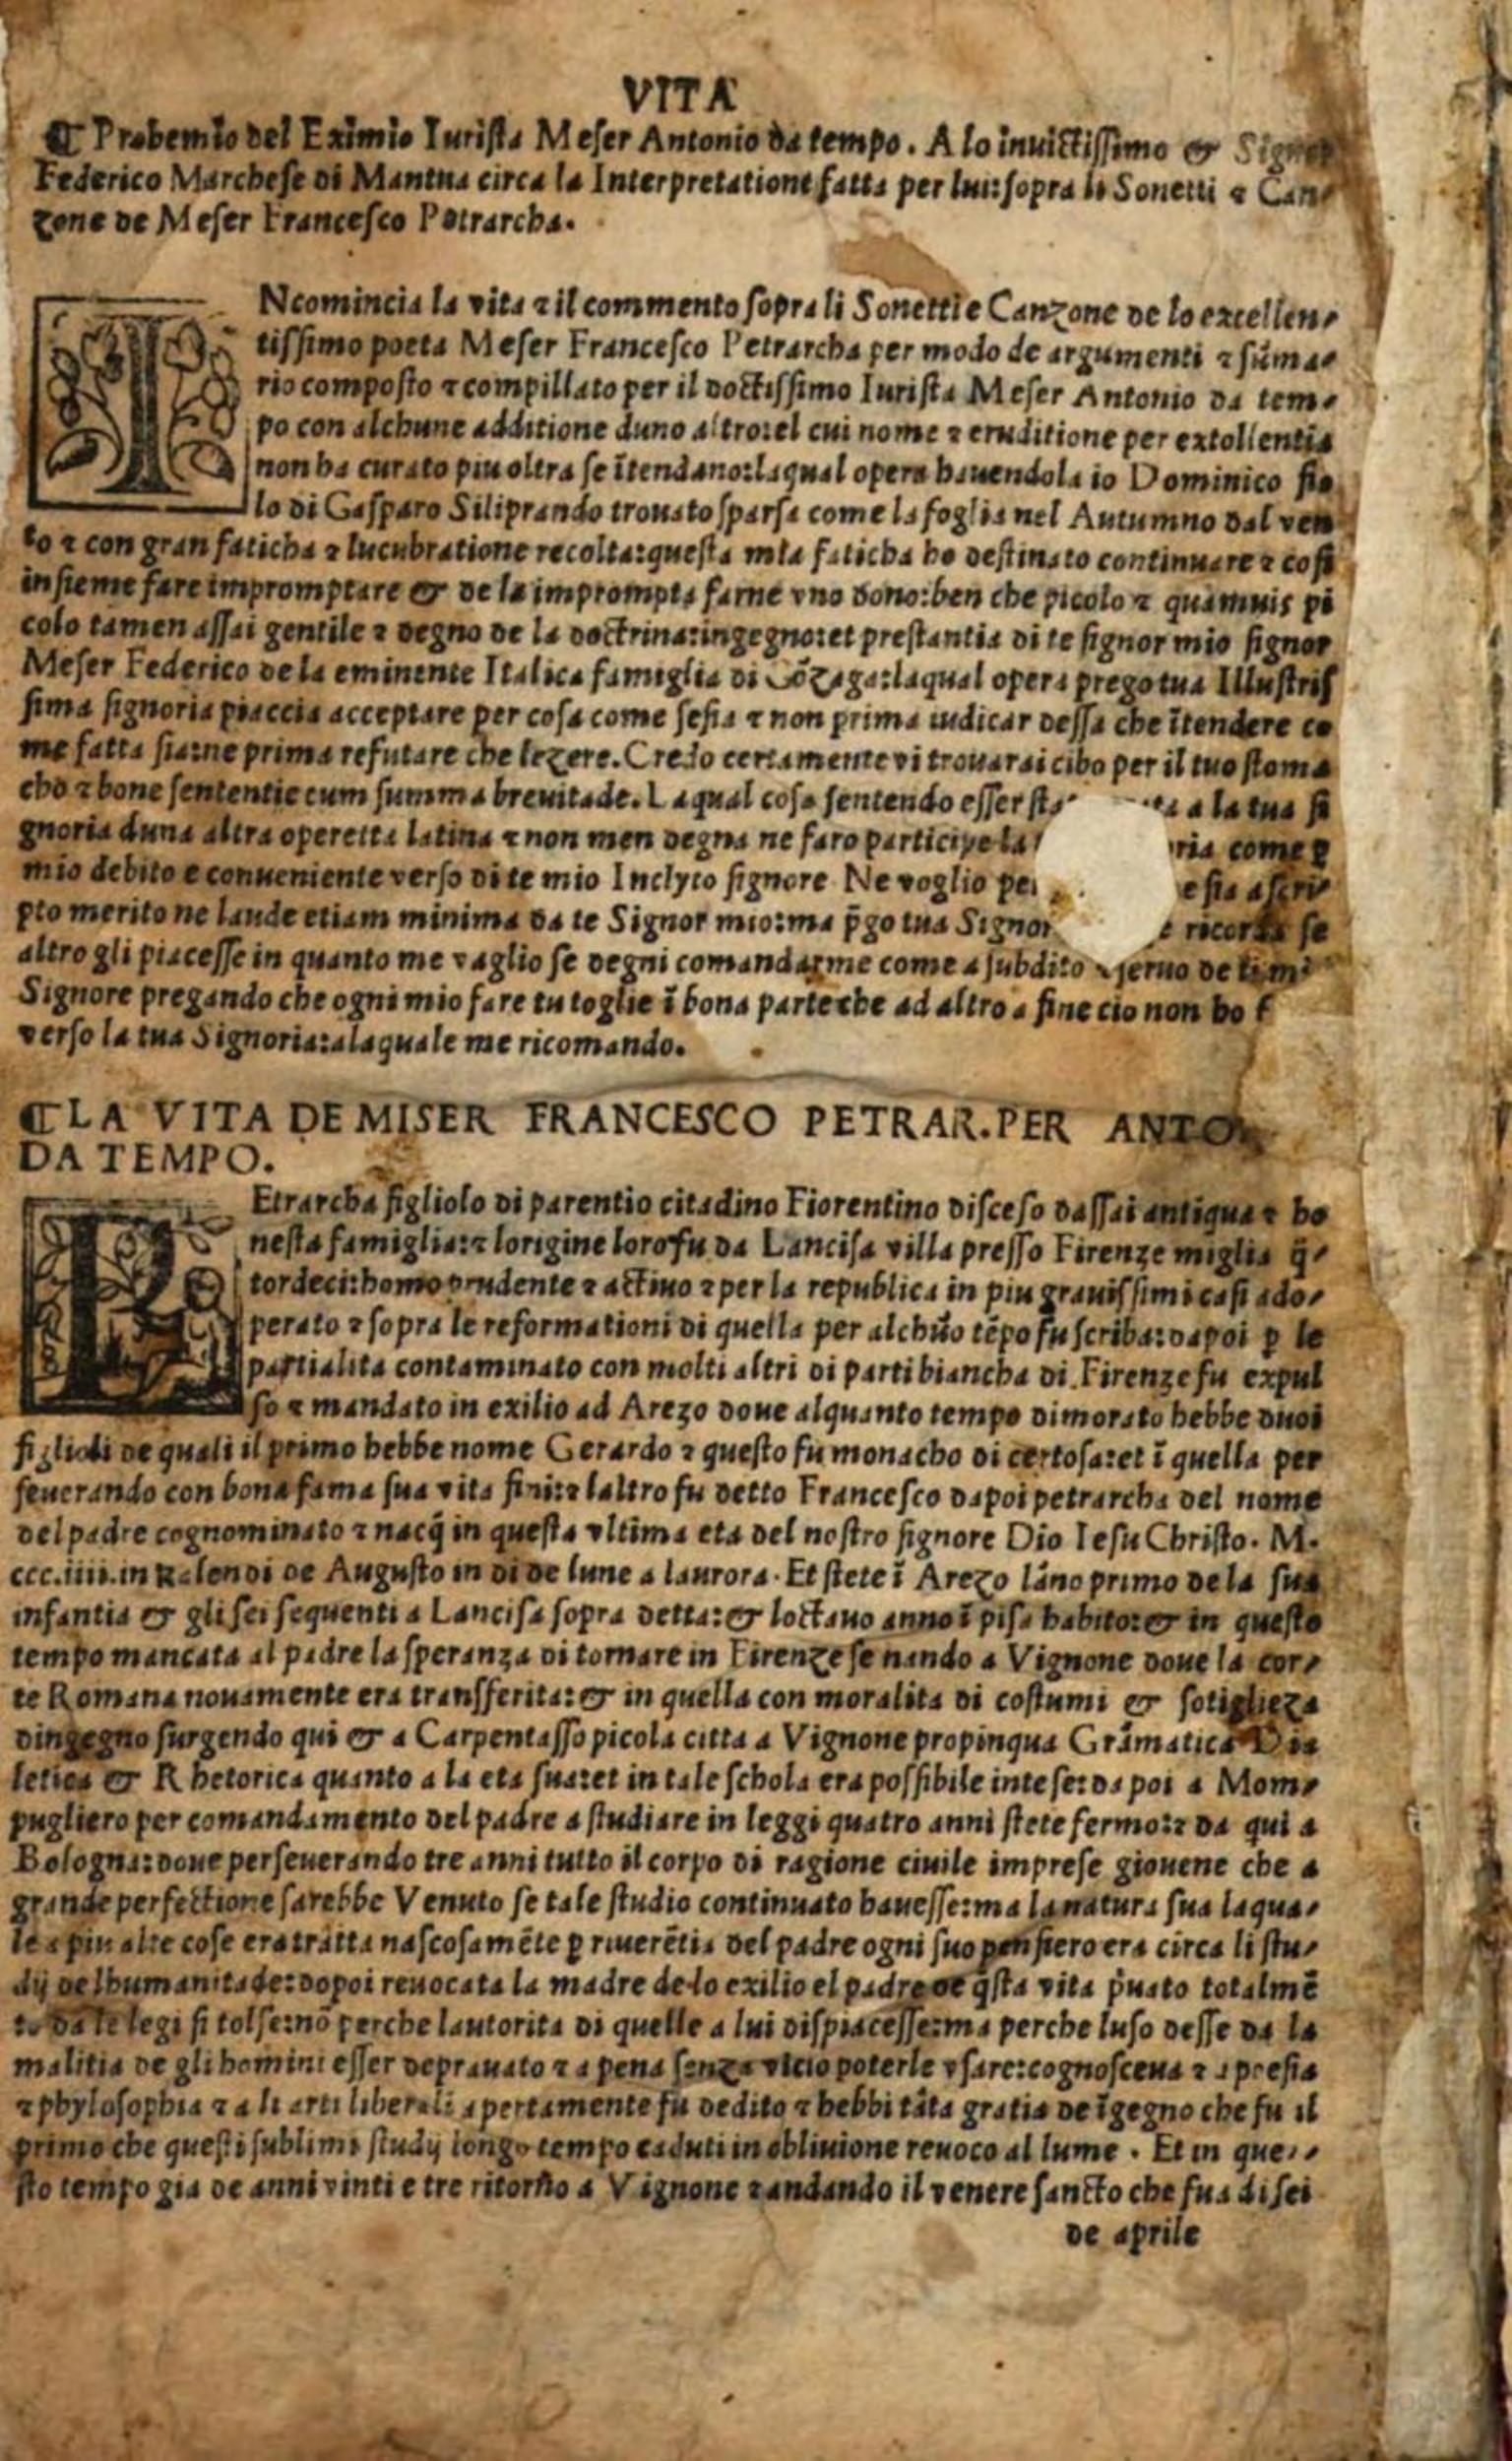 VITA
¶ Prohemio del Eximio Iurista Meser Antonio da tempo. A lo inuictissimo & Signor
Federico Marchese di Mantua circa la Interpretatione fatta per lui:sopra li Sonetti ⁊ Can-
zone de Meser Francesco Petrarcha.
INcomincia la vita ⁊ il commento sopra li Sonetti e Canzone de lo excellen-
tissimo poeta Meser Francesco Petrarcha per modo de argumenti ⁊ sūma-
rio composto ⁊ compillato per il doctissimo Iurista Meser Antonio da tem-
po con alchune additione duno altro:el cui nome ⁊ eruditione per extollentia
non ha curato piu oltra se ītendano:laqual opera hauendola io Dominico fio
lo di Gasparo Siliprando trouato sparsa come la foglia nel Autumno dal ven
to ⁊ con gran faticha ⁊ lucubratione recolta:questa mia faticha ho destinato continuare ⁊ cosi
insieme fare impromptare & de la imprompta farne vno dono:ben che picolo ⁊ quāmuis pi
colo tamen assai gentile ⁊ degno de la doctrina:ingegno:et prestantia di te signor mio signor
Meser Federico de la eminente Italica famiglia di Gōzaga:laqual opera prego tua Illustris
sima signoria piaccia acceptare per cosa come sesia ⁊ non prima iudicar dessa che ītendere co
me fatta sia:ne prima refutare che lezere. Credo certamente vi trouarai cibo per il tuo stoma
cho ⁊ bone sententie cum summa breuitade. Laqual cosa sentendo esser a la tua si
gnoria duna altra operetta latina ⁊ non men degna ne faro participe la come ꝑ
mio debito e conueniente verso di te mio Inclyto signore Ne voglio e sia ascri-
pto merito ne laude etiam minima da te Signor mio:ma p̄go tua ricorda se
altro gli piacesse in quanto me vaglio se degni comandarme come a subdito ⁊ seruo de te mi
Signore pregando che ogni mio fare tu toglie ī bona parte che ad altro a fine cio non ho
verso la tua Signoria:alaquale me ricomando.
¶LA VITA DE MISER FRANCESCO PETRAR. PER ANTO.
DA TEMPO.
PEtrarcha figliolo di parentio citadino Fiorentino disceso dassai antiqua ⁊ ho
nesta famiglia:⁊ lorigine loro fu da Lancisa villa presso Firenze miglia q̄-
tordeci:homo prudente ⁊ actiuo ⁊ per la republica in piu grauissimi casi ado-
perato ⁊ sopra le reformationi di quella per alchūo tēpo fu scriba:dapoi ꝑ le
partialita contaminato con molti altri di parti biancha di Firenze fu expul
so ⁊ mandato in exilio ad Arezo doue alquanto tempo dimorato hebbe duoi
figlioli de quali il primo hebbe nome Gerardo ⁊ questo fu monacho di certosa:et ī quella per
seuerando con bona fama sua vita fini:⁊ laltro fu detto Francesco dapoi petrarcha del nome
del padre cognominato ⁊ nacq̄ in questa vltima eta del nostro signore Dio Iesu Christo. M.
ccc.iiii.in Kalendi de Augusto in di de lune a laurora. Et stete ī Arezo lāno primo de la sua
infantia & gli sei sequenti a Lancisa sopra detta:& loctauo anno ī pisa habito:& in questo
tempo mancata al padre la speranza di tornare in Firenze se nando a Vignone doue la cor-
te Romana nouamente era transferita:& in quella con moralita di costumi & sotiglieza
dingegno surgendo qui & a Carpentasso picola citta a Vignone propinqua Grāmatica Dia
letica & Rhetorica quanto a la eta sua:et in tale schola era possibile intese:da poi a Mom-
pugliero per comandamento del padre a studiare in leggi quatro anni stete fermo:⁊ da qui a
Bologna:doue perseuerando tre anni tutto il corpo di ragione ciuile imprese giouene che a
grande perfectione sarebbe Venuto se tale studio continuato hauesse:ma la natura sua laqua-
le a piu alte cose era tratta nascosamēte ꝑ riuerētia del padre ogni suo pensiero era circa li stu-
dij de lhumanitade:dopoi reuocata la madre de lo exilio el padre de q̄sta vita p̄uato totalmē
te da le legi si tolse:nō perche lautorita di quelle a lui dispiacesse:ma perche luso desse da la
malitia de gli homini esser deprauato ⁊ a pena senza vicio poterle vsare:cognosceua ⁊ a poesia
⁊ phylosophia ⁊ a li arti liberali apertamente fu dedito ⁊ hebbi tāta gratia de īgegno che fu il
primo che questi sublimi studij longo tempo caduti in obliuione reuoco al lume. Et in que-
sto tempo gia de anni vinti e tre ritorno a Vignone ⁊ andando il venere sancto che fu a di sei
de aprile